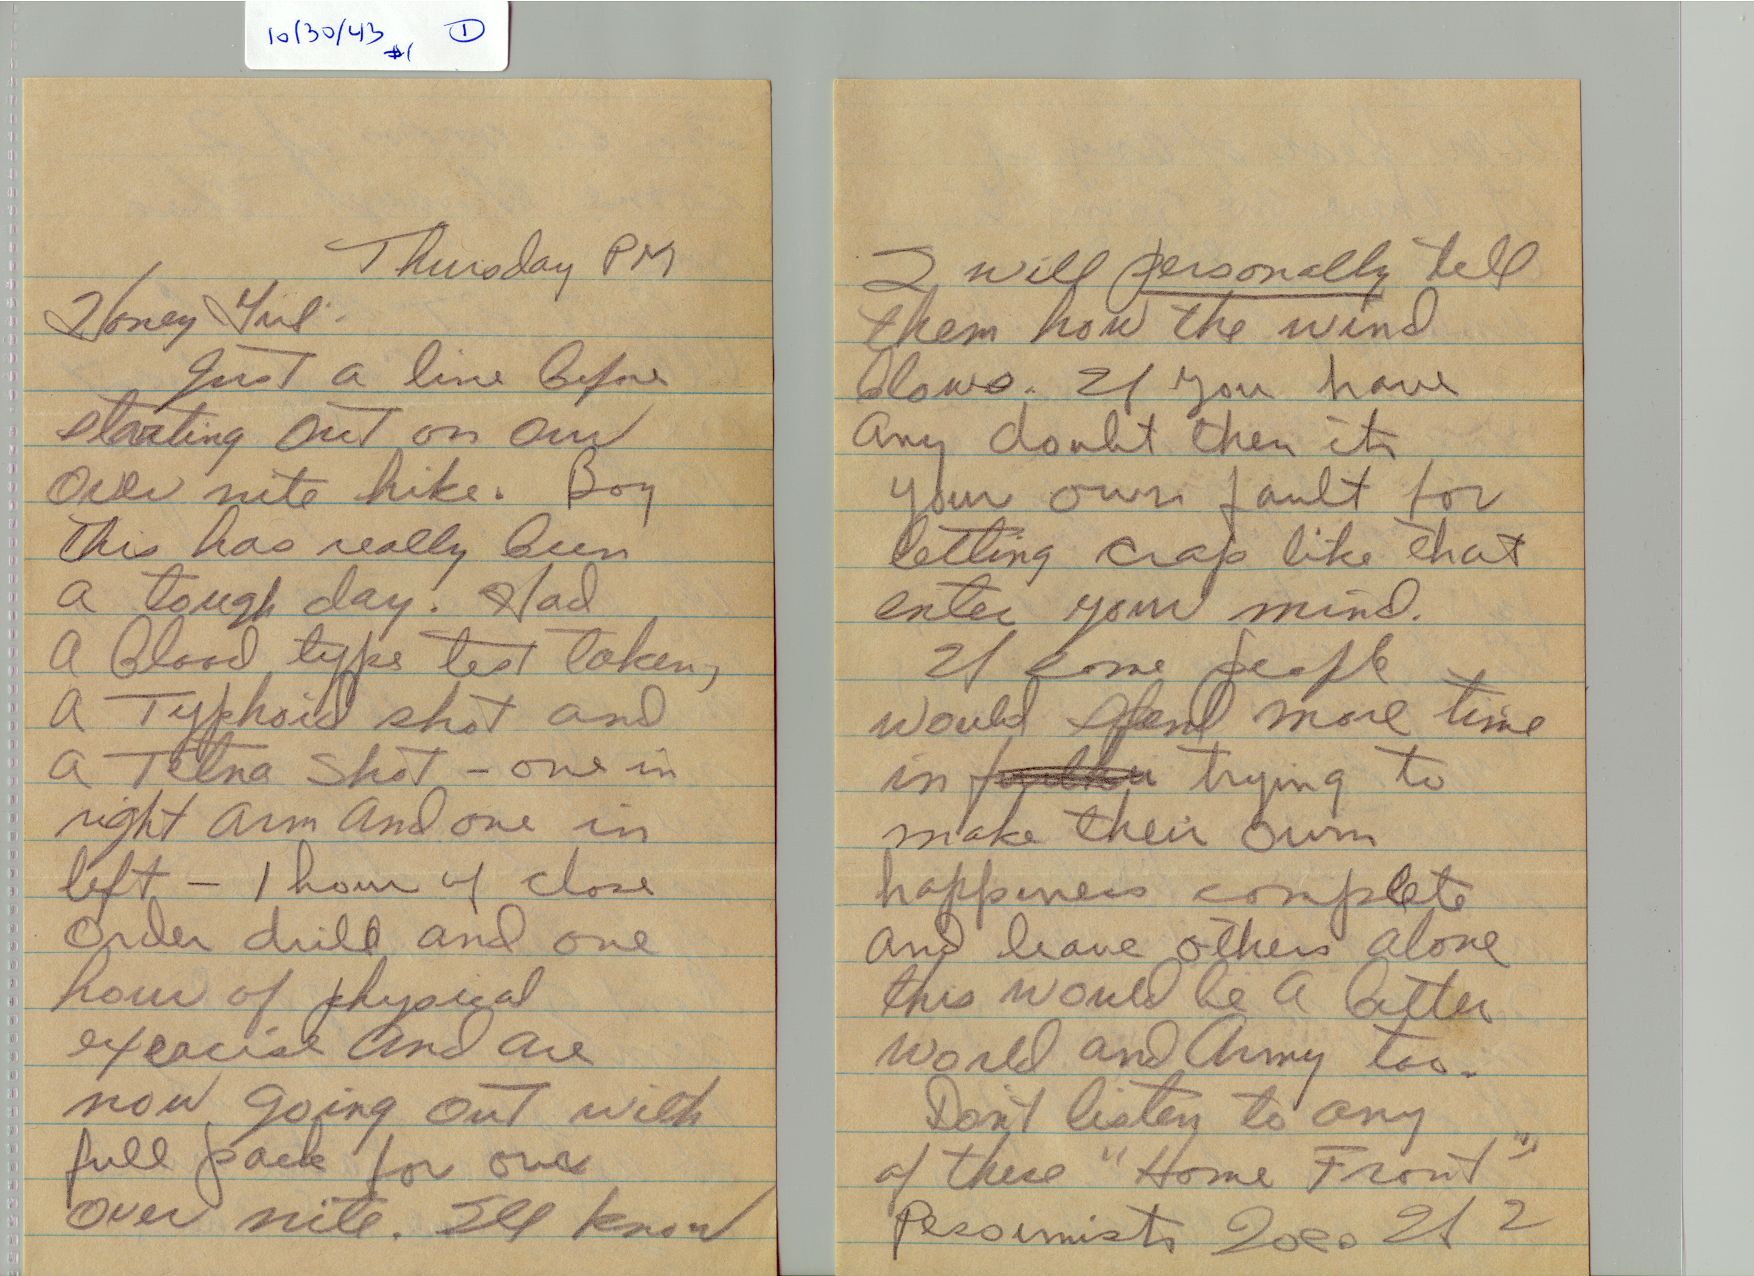 10/30/43 #1 ①
Thursday PM
Honey Girl.
Just a line before
starting out on our
over nite hike. Boy
this has really been
a tough day. Had
a blood type test taken,
a Typhoid shot and
a Tetna shot - one in
right arm and one in
left - 1 hour of close
order drill and one
hour of physical
exercise and are
now going out with
full pack for our
over nite. Ill know
I will personally tell
them how the wind
blows. If you have
any doubt then its
your own fault for
letting crap like that
enter your mind.
If some people
would spend more time
in trying to
make their own
happiness complete
and leave others alone
this would be a better
world and Army too.
Don't listen to any
of these "Home Front"
Pessimists If 2